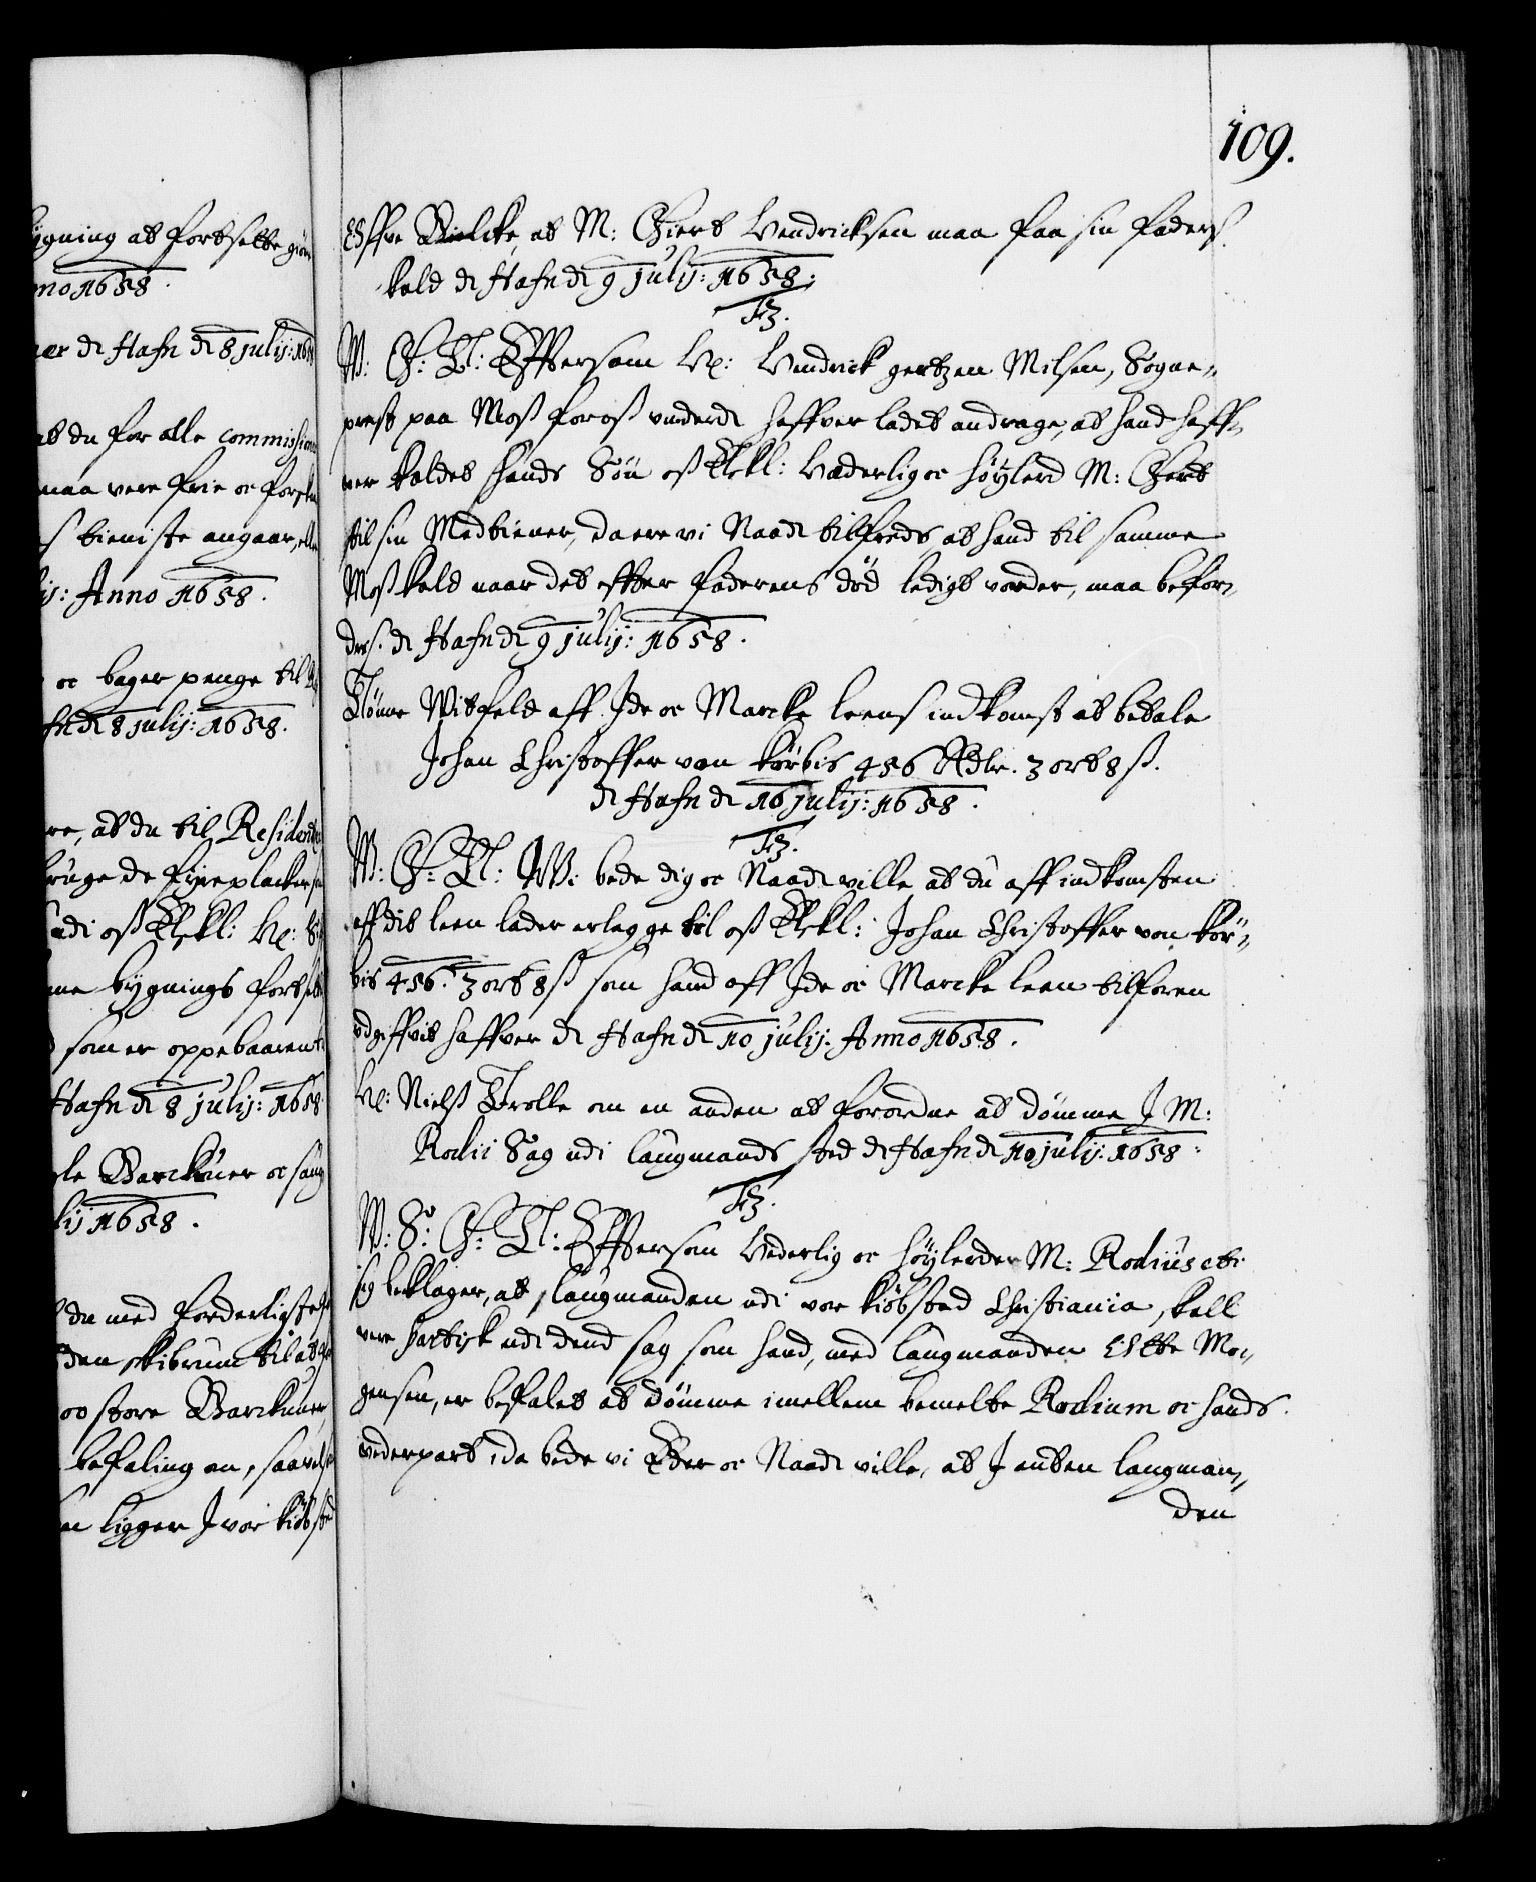 109.
ygning at fortsette giør
nno 1658.
ner de Hafn d 8 julij: 1658
at du for alle commission
maa vere frie oc forsk
s tieniste angaar, elle
ij: Anno 1658.
oc bager penge til
fn d 8 julij: 1658.
re, at du til Residentz
bruge de fyreplacker
udi oss Elskl: Her:
me bygnings fortsett
som er oppebaaren
Hafn d 8 julij: 1658
le Barckner oc
lij 1658.
du med forderligste
den skibrum til at
oo store Barckner
befaling om, saavel
en ligger J vor kiøbsted
Iffve Bielcke, at M: Giert Hendricksen maa faa sin faders
kald de Hafn d 9 julij: 1658:
Tz.
W: G: T: Efftersom Her: Hendrick gertzen Milsen, Sogne-
prest paa Moss for oss underd: haffver ladet andrage, at hand haff-
ver kaldet hands Søn oss Elskl: Hæderlig oc Høylerd M: Gert
til sin Medtiener, da ere vi Naad: tilfreds, at hand til samme
Moss kald naar det effter faderens død ledigt vorder, maa befor-
dres. de Hafn d 9 julij: 1658.
Tønne Witfeld aff Ide oc Marcke leens indkomst at betale
Johan Christoffer von Kørbis 456 Rdlr. 3 ort 8 ß.
de Hafn d 16 julij: 1658.
Tz.
W: G: T: Wi bede dig oc Naad: ville at du aff indkomsten
aff dit leen lader erlegge til oss Elskl: Johan Christoffer von Kør-
bis 456. 3 ort 8 ß som hand aff Ide oc Marcke leen tilforen
udgiffvit haffver de Hafn d 10 julij: Anno 1658.
Her: Nielss Trolle om en anden at forordne at dømme J M:
Rodii Sag udi laugmands sted de Hafn d 10 julij: 1658:
Tz.
W: S: G: T: Efftersom Hederlig oc Høylerder M: Rodius etc:
sig beklager, at laugmanden udi vor kiøbsted Christiania, skall
vere partisk udi dend sag som hand, med laugmanden Este Mo-
gensen, er befalet at dømme imellem bemelte Rodium oc hands
vederpart, da bede vi Eder oc Naad: ville, at J anten laugman-
den